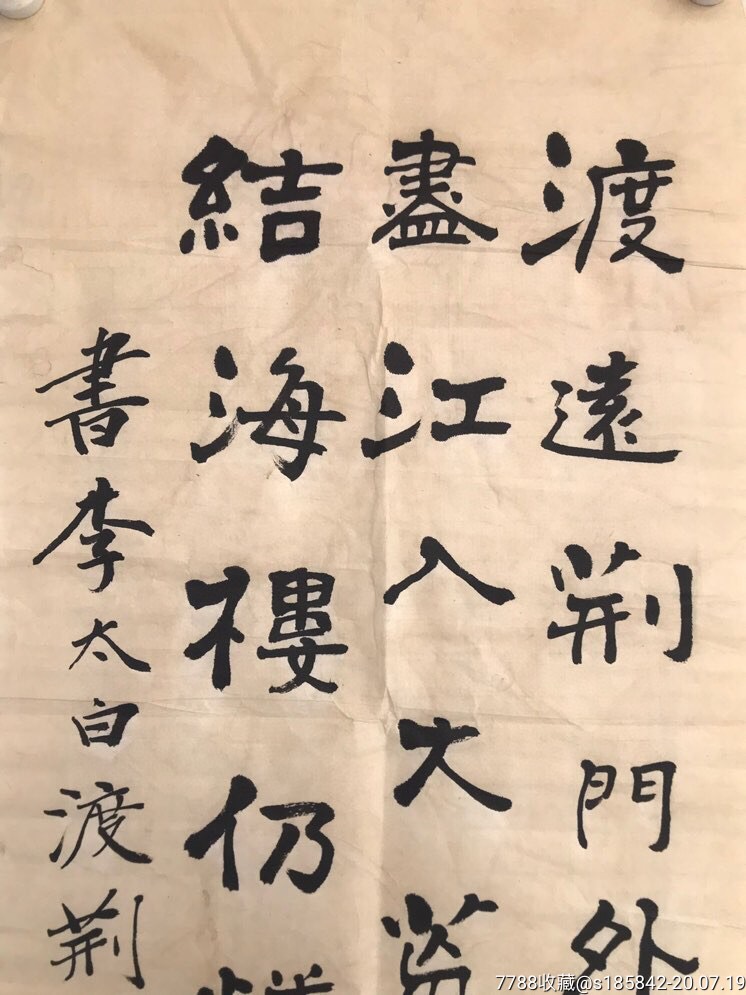 渡遠荆門外
盡江入大
結海樓仍
書李太白渡荆
7788收藏@s185842-20.07.19